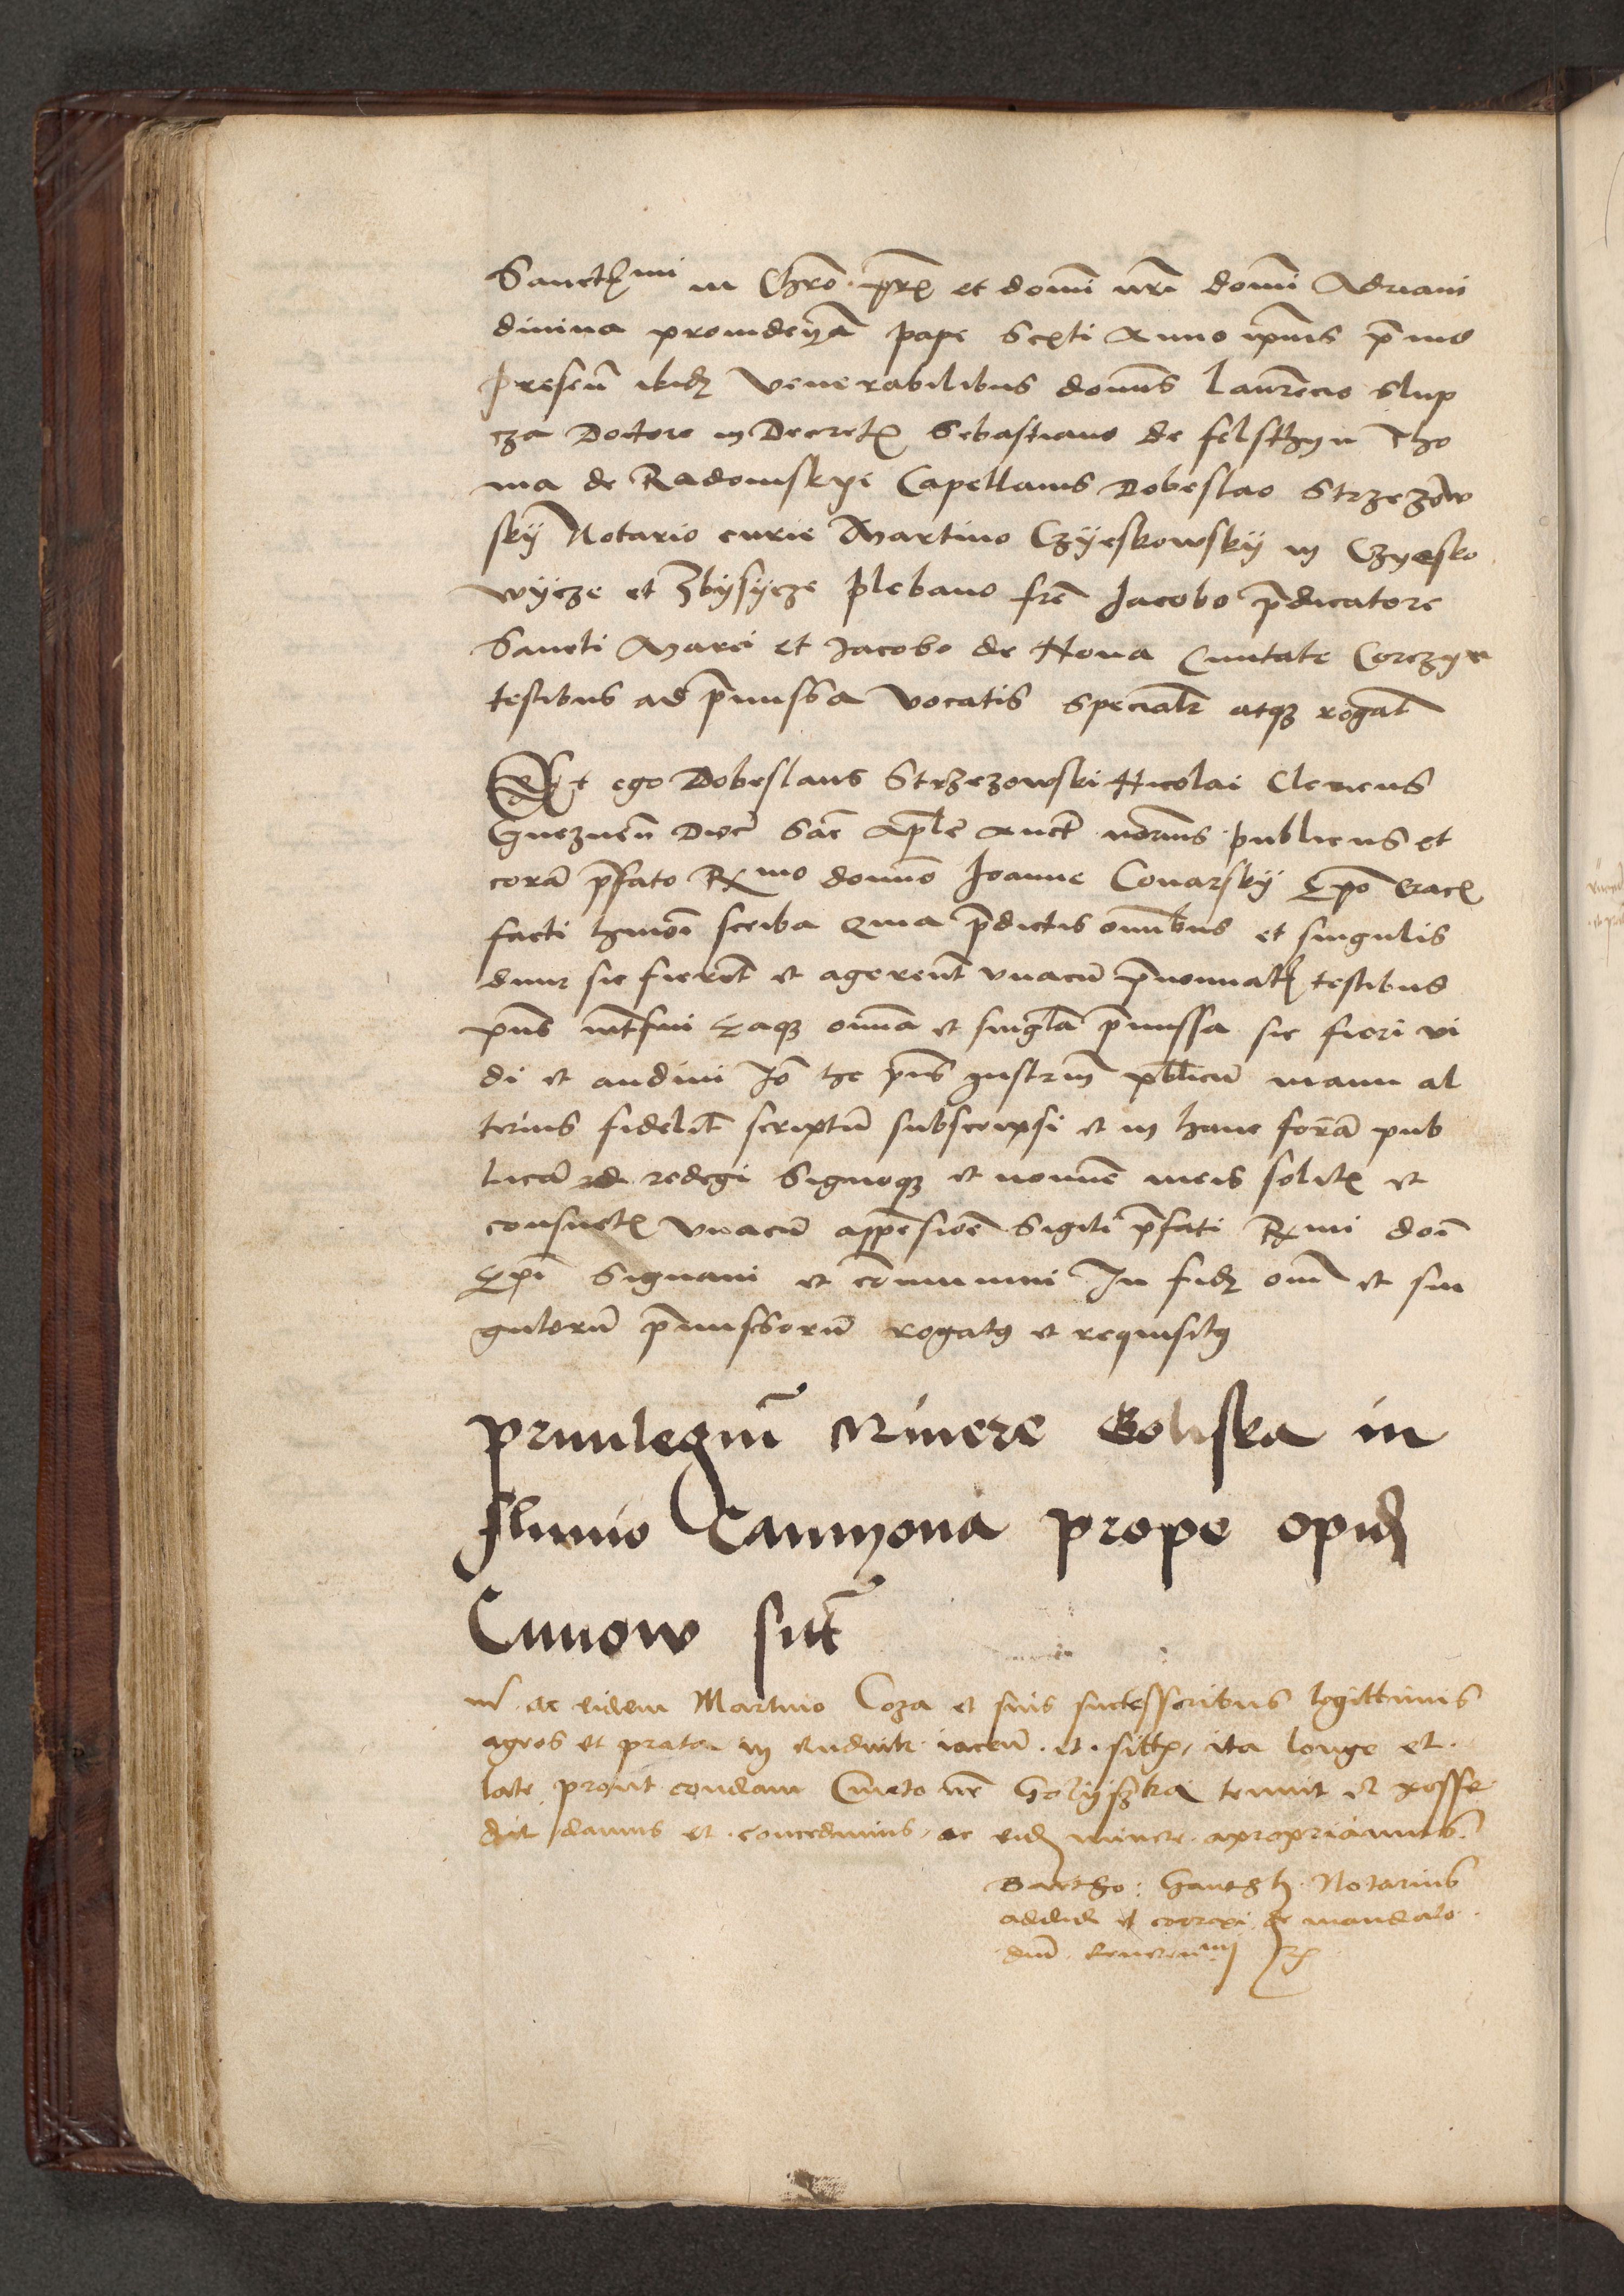 Sanctissimi in Chro pris et domi nri domi Adriani
divina providencia pape Sexti Anno ipius primo
Presen ibidem Venerabilibus domins Laurencio Slup
cza Doctore in Decretis Sebastiano de felsthyn Tho
ma de Radomskye Capellanis Dobeslao Strzezow
sky Notario curie Martino Czyeskowsky in Czyesko
wycze et Zbysycze plebano fre Jacobo predicatore
Sancti Marci et Jacobo de Nova Civitate Corczyn
testibus ad premissa vocatis specialr atque rogat
Et ego Dobeslaus Strzezowski Nicolai Clericus
Gneznen Dioc Sac Aplice Auct notarius publicus et
coram prefato Rmo domino Joanne Conarsky Epo Crac
facti hmoi scriba Quia predictis omnibus et singulis
dum sic fierent et agerent unacum prenominatis testibus
pns interfui Eaque omnia et singula premissa sic fieri vi
di et audivi Io hoc pns Instrm publicum manu al
terius fidelit scriptum subscripsi et in hanc formam pub
licam redegi Signoque et nomine meis solitis et
consuetis unacum appensione Sigilli prefati Rmi doi
Epi Signavi et communivi In fidem omi et sin
gulorum premissorum rogatus et requisitus
Privilegium Minere Goliska in
fluvio Camyona prope opid
Cunow sitt
ac eidem Martino Coza et suis successoribus legittimis
agros et prata in iacen et sitt ita longe et
late prout condam Cmeto nre Golyszka tenuit et posse
dit damus et concedimus ac eidem minere apropriamus
Bartho: Gantsh Notarius
addidi et correxi de mandato
dni